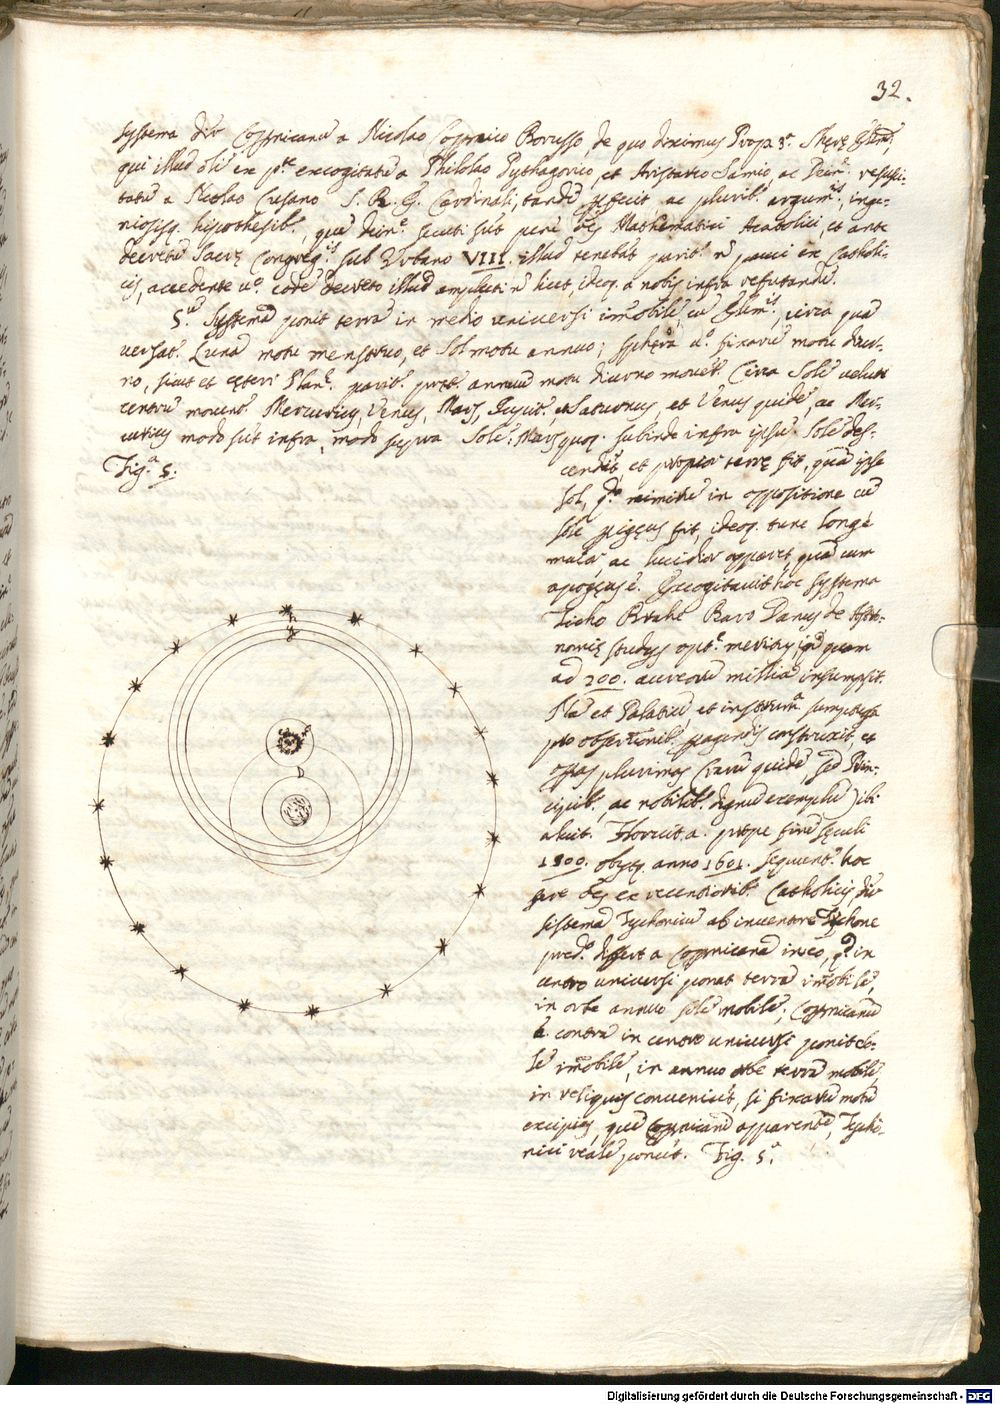 32.
Systema dr̃ Copernicanũ a Nicolao Copernico Borusso, de quo diximus Prop. 3.ª
qui illud oĩ ex p.te excogitatũ a Philolao Pythagorico, et Aristarco Samio, ac Dein.e resusci-
tatũ a Nicolao Cusano S. R. E. Cardinali, tandẽ effecit ac plurib. argum.is, inge-
niosisq. hipothesib., quẽ dein.e secuti sũt penè oẽs Mathematici Acatolici, et ante
decretũ Sacrę Congreg.is sub Urbano VIII. illud tenebãt parit. ñ pauci ex Catholi-
cis, accedente u.o eodẽ decreto illud amplecti ñ licet, ideoq. a nobis infra refutandũ.
5.ũ Systema ponit terrã in medio universi imobilẽ, cũ Elem.is, circa quã
versat. Luna motu menstruo, et Sol motu annuo; sphęra u.o fixarũ motu diur-
no, sicut et cęteri Plan.e parit. pręt. annuũ motu diurno movet. Circa Solẽ velut
centrũ movent. Mercurius, Venus, Mars, Jupit., et Saturnus, et Venus quidẽ, ac Mer-
curius modo sũt infra, modo supra Solẽ: Mars quoq. subinde infra ipsũ Solẽ des-
Fig.ª 5.
cendit, et propior terrę fit, quã ipse
Sol, q.do nimirũ in oppositione cũ
Sole pigęus fit, ideoq. tunc longè
maior, ac lucidior apparet, quã cum
apogęus ẽ. Excogitavit hoc systema
Ticho Brahe Baro Danus de Astro-
nomię studijs opt.e meritus, in quam
ad 200. aureorũ millia insumpsit.
Nã et Palatiũ, et instrum.a sumptuosa
pro observationib. peragendis construxit, et
opas plurimas (rarũ quidẽ, sed Prin-
cipib., ac nobilib. dignũ exemplũ) ibi
aluit. Floruit a. prope finẽ sęculi
1500. obijt. anno 1601. sequunt. hoc
fere oẽs ex recentiorib. Catholicis, dr̃
sistema Tychonicũ ab inventore Tychone
pred.o differt a Copernicano in eo, q.d in
centro universi ponat terrã imobilẽ,
in orbe annuo solẽ mobilẽ; Copernicanũ
è contra in centro universi ponit So-
lẽ imobilẽ, in annuo orbe terrã mobilẽ,
in reliquis conveniũt, si fixarũ motũ
excipias, quẽ Copernicani apparentẽ, Tycho-
nici realẽ ponũt. Fig. 5.ª
Digitalisierung gefördert durch die Deutsche Forschungsgemeinschaft - DFG